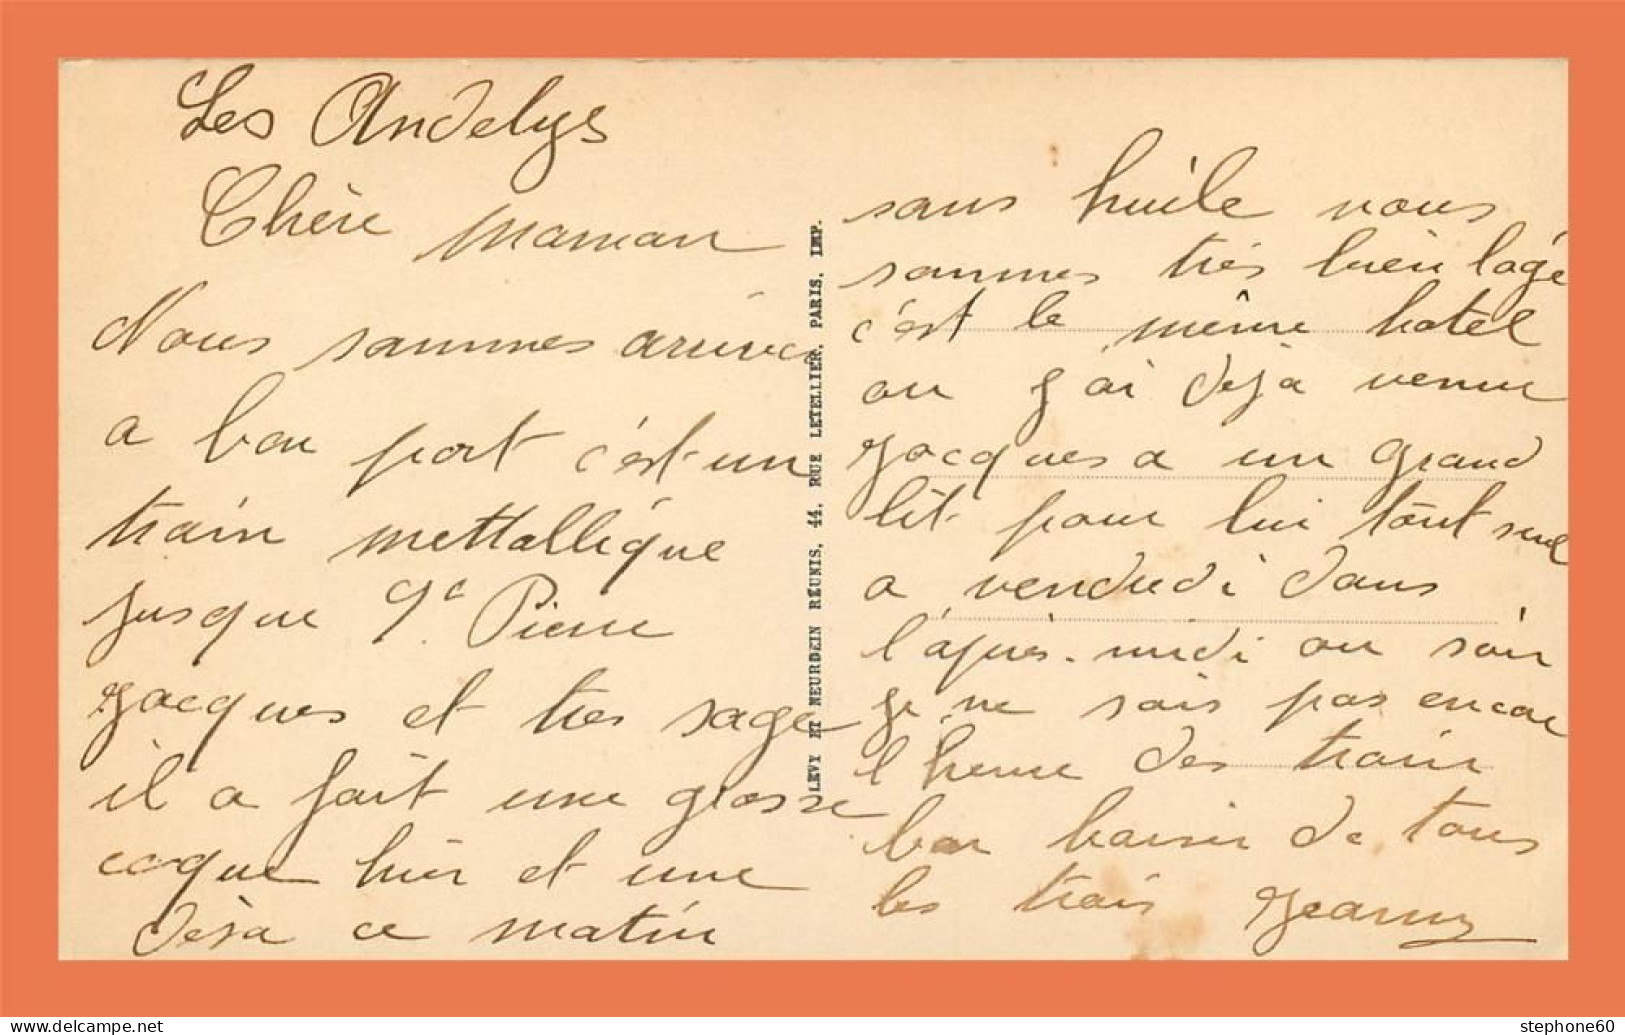 Les Andelys
Chère Maman
Nous sommes arrivés
a bon port c'est un
train mettallique
jusque St Pierre
Jacques et tres sage
il a fait une grosse
coque hier et une
déja ce matin
LEVY ET NEURDEIN RÉUNIS, 44, RUE LETELLIER, PARIS. IMP.
sans huile nous
sommes très bien logé
c'est le même hotel
ou j'ai déjà venue
Jacques a un grand
lit pour lui tout seul
a vendredi dans
l'après-midi ou soir
je ne sais pas encore
l heure des train
bon baiser de tous
les trois Jeanny
delcampe.net
stephone60